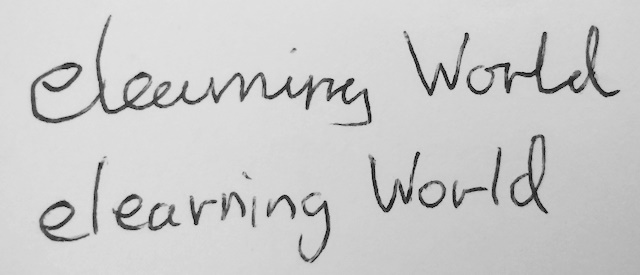 elearning World
elearning World